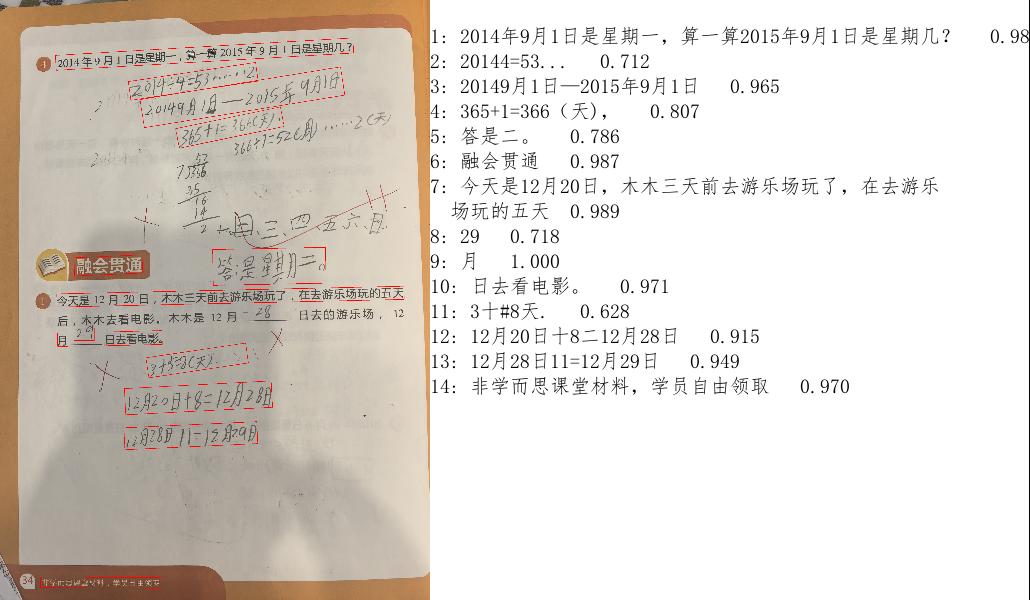 4 2014年9月1日是星期一，算一算2015年9月1日是星期几？
2014÷4=53……2
20149月1日—2015年9月1日
365+1=366(天)
366÷7=52(周)……2(天)
52
7 366
35
16
14
2
一、二、三、四、五、六、日
答:是星期二。
融会贯通
1 今天是 12 月 20 日，木木三天前去游乐场玩了，在去游乐场玩的五天
后，木木去看电影。木木是 12 月 28 日去的游乐场，12
月 29 日去看电影。
3+5=8(天)
12月20日+8=12月28日
12月28日 11=12月29日
34 非学而思课堂材料，学员自由领取
1: 2014年9月1日是星期一，算一算2015年9月1日是星期几？ 0.98
2: 20144=53... 0.712
3: 20149月1日—2015年9月1日 0.965
4: 365+1=366（天）， 0.807
5: 答是二。 0.786
6: 融会贯通 0.987
7: 今天是12月20日，木木三天前去游乐场玩了，在去游乐
场玩的五天 0.989
8: 29 0.718
9: 月 1.000
10: 日去看电影。 0.971
11: 3十#8天. 0.628
12: 12月20日十8二12月28日 0.915
13: 12月28日11=12月29日 0.949
14: 非学而思课堂材料，学员自由领取 0.970